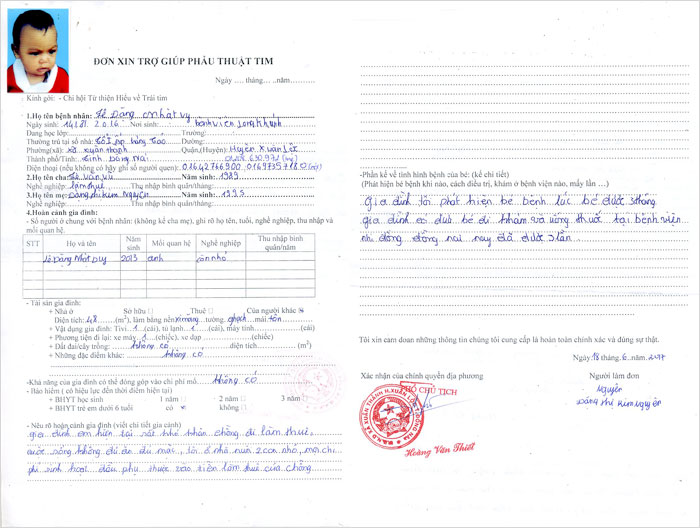 ĐƠN XIN TRỢ GIÚP PHẪU THUẬT TIM
Ngày .... tháng ... ..năm...........
Kính gởi: - Chi hội Từ thiện Hiểu về Trái tim
1.Họ tên bệnh nhân: Lê Đăng Nhật Vy
Ngày sinh: 14.8. 2016 Nơi sinh: bệnh viện Long Khánh
Đang học lớp: Trường:
Thường trú tại số nhà: Tổ 1 ấp Đường:
Phường(xã): xã Xuân Thành Quận,(Huyện): Huyện Xuân Lộc
Thành phố/Tỉnh: Tỉnh Đồng Nai
Điện thoại (nếu không có hãy ghi số người quen): 01642766900
2.Họ tên cha: Lê Văn Năm sinh: 1989
Nghề nghiệp: Làm thuê Thu nhập bình quân/tháng:
3.Họ tên mẹ: Đặng Thị Kim Nguyên Năm sinh: 1995
Nghề nghiệp: Thu nhập bình quân/tháng:
4.Hoàn cảnh gia đình:
- Số người ở chung với bệnh nhân: (không kể cha mẹ), ghi rõ họ tên, tuổi, nghề nghiệp, thu nhập và
mối quan hệ:
STT Họ và tên Năm sinh Mối quan hệ Nghề nghiệp Thu nhập bình quân/năm
Lê Đặng Nhật Duy 2013 anh còn nhỏ
- Tài sản gia đình:
+ Nhà ở Sở hữu □ Thuê □ Của người khác
Diện tích: 48 (m²), làm bằng nền ximang tường gạch mái tôn
+ Vật dụng gia đình: Tivi 1 (cái), tủ lạnh 1 (cái), máy tính (cái)
+ Phương tiện đi lại: xe máy 1 (chiếc), xe đạp (chiếc)
+ Đất đai/cây trồng: không có , diện tích (m²)
+ Những đặc điểm khác: không có
-Khả năng của gia đình có thể đóng góp vào chi phí mổ: không có
- Bảo hiểm ( có hiệu lực đến thời điểm hiện tại)
+ BHYT học sinh 1 năm □ 2 năm □ 3 năm
+ BHYT trẻ em dưới 6 tuổi có không □
- Nêu rõ hoàn cảnh gia đình (viết chi tiết gia cảnh)
gia đình em hiện tại rất khó khăn chồng đi làm thuê,
cuộc sống không đủ ăn đủ mặc, tôi ở nhà nuôi 2 con nhỏ, mọi chi
phí sinh hoạt đều phụ thuộc vào tiền làm thuê của chồng.
-Phần kể về tình hình bệnh của bé: (kể chi tiết)
(Phát hiện bé bệnh khi nào, cách điều trị, khám ở bệnh viện nào, mấy lần …)
gia đình tôi phát hiện bé bệnh lúc bé được tháng
gia đình có đưa bé đi khám và uống thuốc tại bệnh viện
nhi đồng đồng nai nay đã được 3 lần.
Tôi xin cam đoan những thông tin chúng tôi cung cấp là hoàn toàn chính xác và đúng sự thật.
Ngày 18 tháng 6 năm 2017
Xác nhận của chính quyền địa phương Người làm đơn
PHÓ CHỦ TỊCH
Nguyên
Đặng Thị Kim Nguyên
Hoàng Văn Thiết